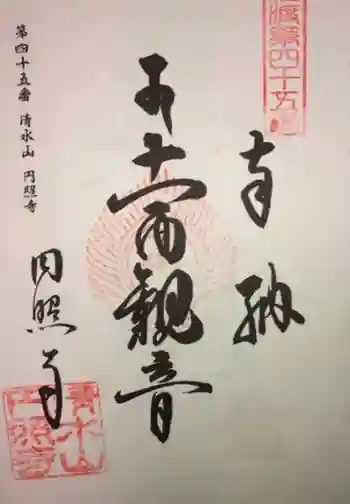 渡第四十五
奉納
十一面觀音
円照寺
第四十五番 清水山 円照寺
清水山
円照寺